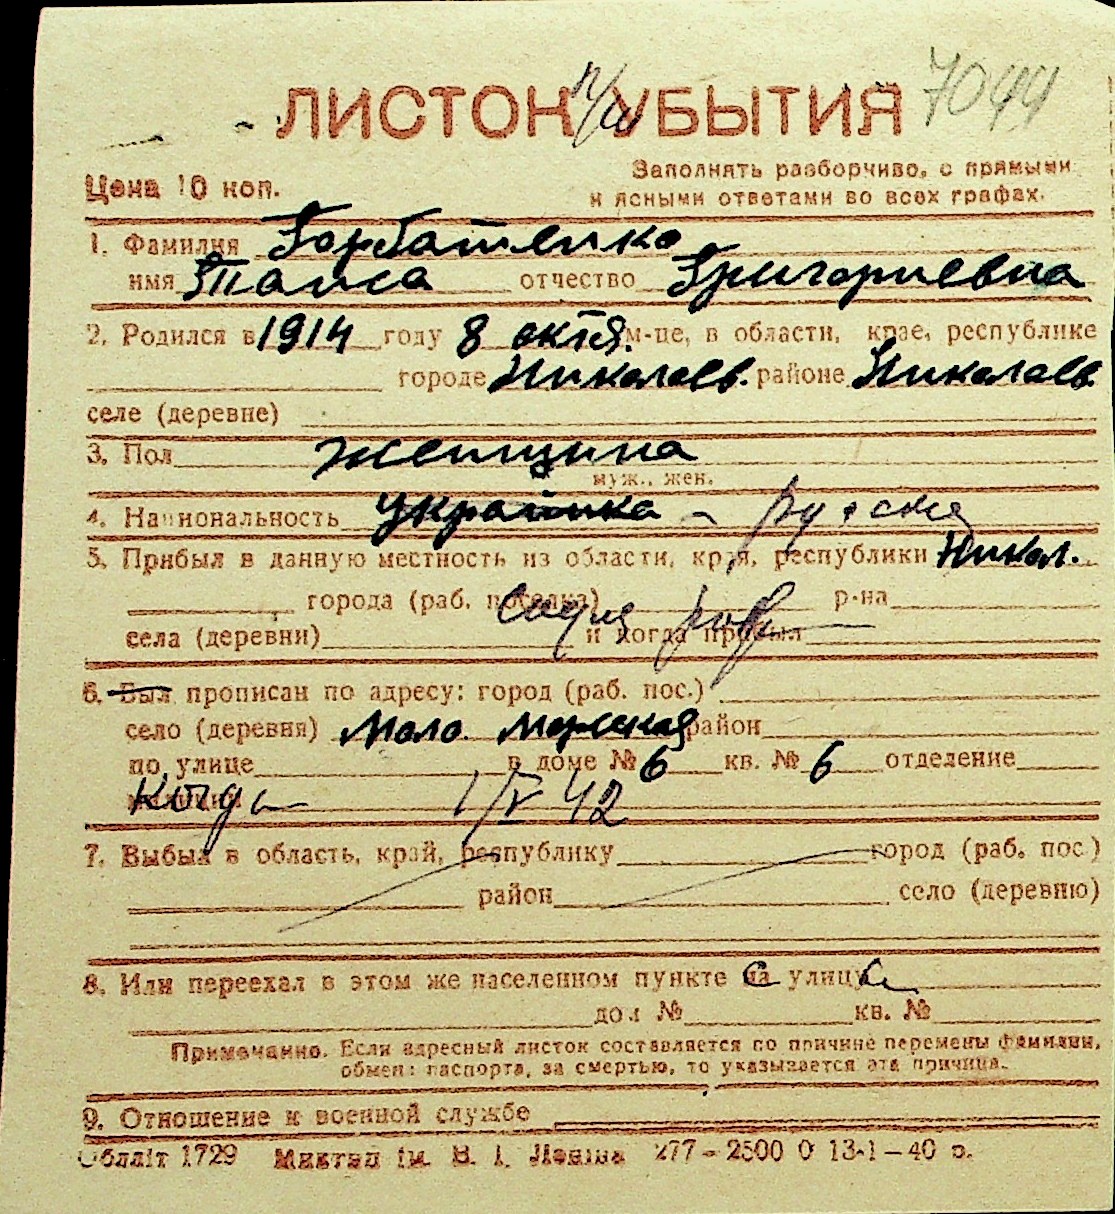 ЛИСТОК УБЫТИЯ 7044
Цена 10 коп.
Заполнять разборчиво, с прямыми
и ясными ответами во всех графах.
1. Фамилия Горбатенко
имя Таиса отчество Григориевна
2. Родился в 1914 году 8 октя. м-це, в области, крае, республике
городе Николаев. районе Николаев.
селе (деревне)
3. Пол женщина
муж., жен.
4. Национальность украинка - русская
5. Прибыл в данную местность из области, края, республики Никол.
города (раб. поселка) р-на
села (деревни) и когда прибыл
6. Был прописан по адресу: город (раб. пос.)
село (деревня) Мало. Морская район
по улице в доме № 6 кв. № 6 отделение
милиции Когда 1/V 42
7. Выбыл в область, край, республику город (раб. пос.)
район село (деревню)
8. Или переехал в этом же населенном пункте на улицу
дом № кв. №
Примечание. Если адресный листок составляется по причине перемены фамилии,
обмена паспорта, за смертью, то указывается эта причина.
9. Отношение к военной службе
Облліт 1729 Миктип ім. В. І. Леніна 277-2500 0 13-1-40 р.